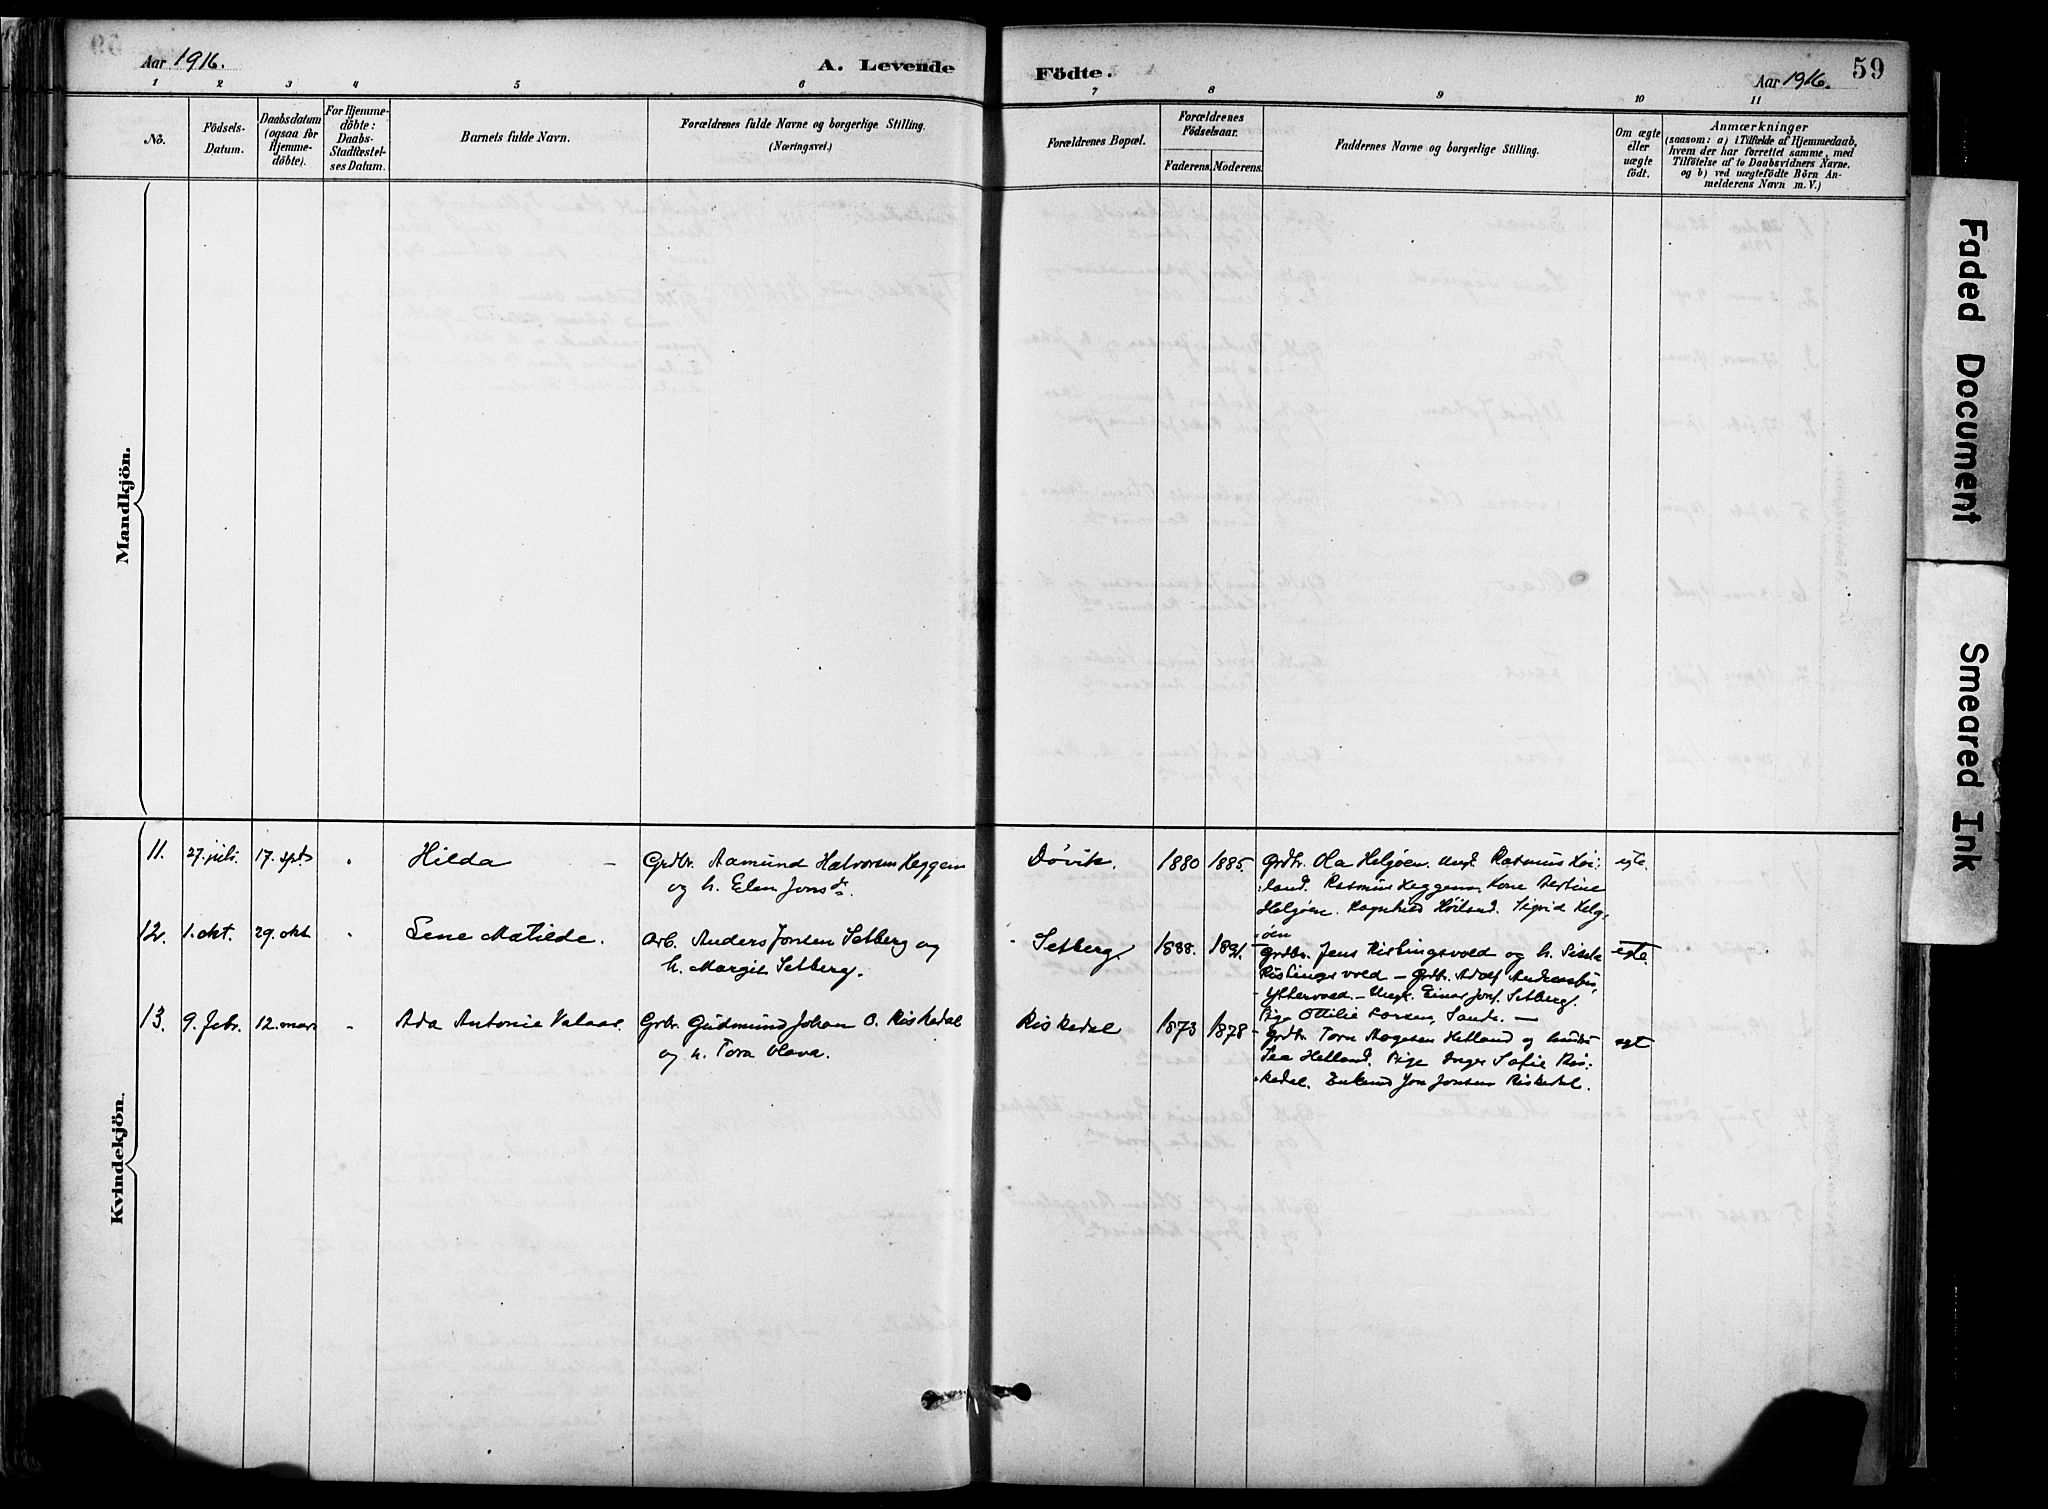 Aar 1916.
A. Levende
Födte.
Aar 1916.
59
1 2 3 4 5 6 7 8 9 10 11
No.
Födsels-
Datum.
Daabsdatum
(ogsaa for
Hjemme-
döbte).
For Hjemme-
döbte:
Daabs-
Stadfæstel-
ses Datum.
Barnets fulde Navn.
Forældrenes fulde Navne og borgerlige Stilling.
(Næringsvei.)
Forældrenes Bopæl.
Forældrenes
Födselsaar.
Faderens. Moderens.
Faddernes Navne og borgerlige Stilling.
Om ægte
eller
uægte
födt.
Anmærkninger
(saasom: a) i Tilfælde af Hjemmedaab,
hvem der har forrettet samme, med
Tilföielse af to Daabsvidners Navne,
og b) ved uægtefödte Börn An-
melderens Navn m. V.)
Mandkjön.
Kvindekjön.
11. 27. juli. 17. spt Hilda Grdbr. Aamund Halvorsen Heggem
og h. Elen Jonsd.
Døvik. 1880 1885.
Grdbr. Ola Helgøen. Ungk. Rasmus Høi-
land. Rasmus Heggem. Kone Bertine
Helgøen. Ragnhild Høiland. Sigrid Helg-
øen
egte.
12. 1. okt. 29. okt Lene Matilde. Arb. Anders Jonsen Setberg og
h. Margit Setberg.
Setberg. 1888. 1891.
Grdbr. Jens Ristingsvold og h. Sisele
Ristingsvold - Grdbr. Adolf
Yttervold. - Ungk. Einar Jons. Setberg.
Pige Ottilie Larsen, Sande. -
egte.
13. 9. febr. 12. mars Ada Antonie Valaas. Grbr. Gudmund Johan O. Riskedal
og h. Tora Olava.
Riskedal 1873 1878
Grdbr. Tore Aagesen Helland og hustru
Lea Helland. Pige Inger Sofie Ris-
kedal. Enkemd Jon Jonsen Riskedal.
egt
Faded Document
Smeared Ink